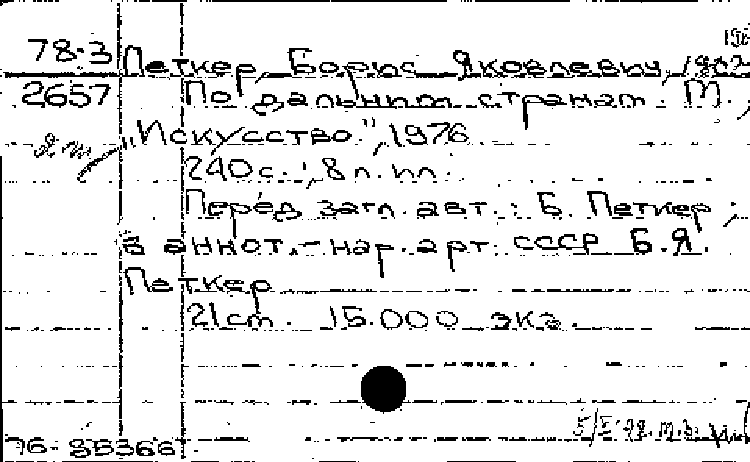 78-3 Петкер, Борис Яковлевич, 1902
2657 По дальним странам. М.,
"Искусство", 1976.
240 с.; 8 л. ил.
Перед загл. авт.: Б. Петкер;
в аннот. - нар. арт. СССР Б.Я.
Петкер
21 см. 15.000 экз.
76-88366